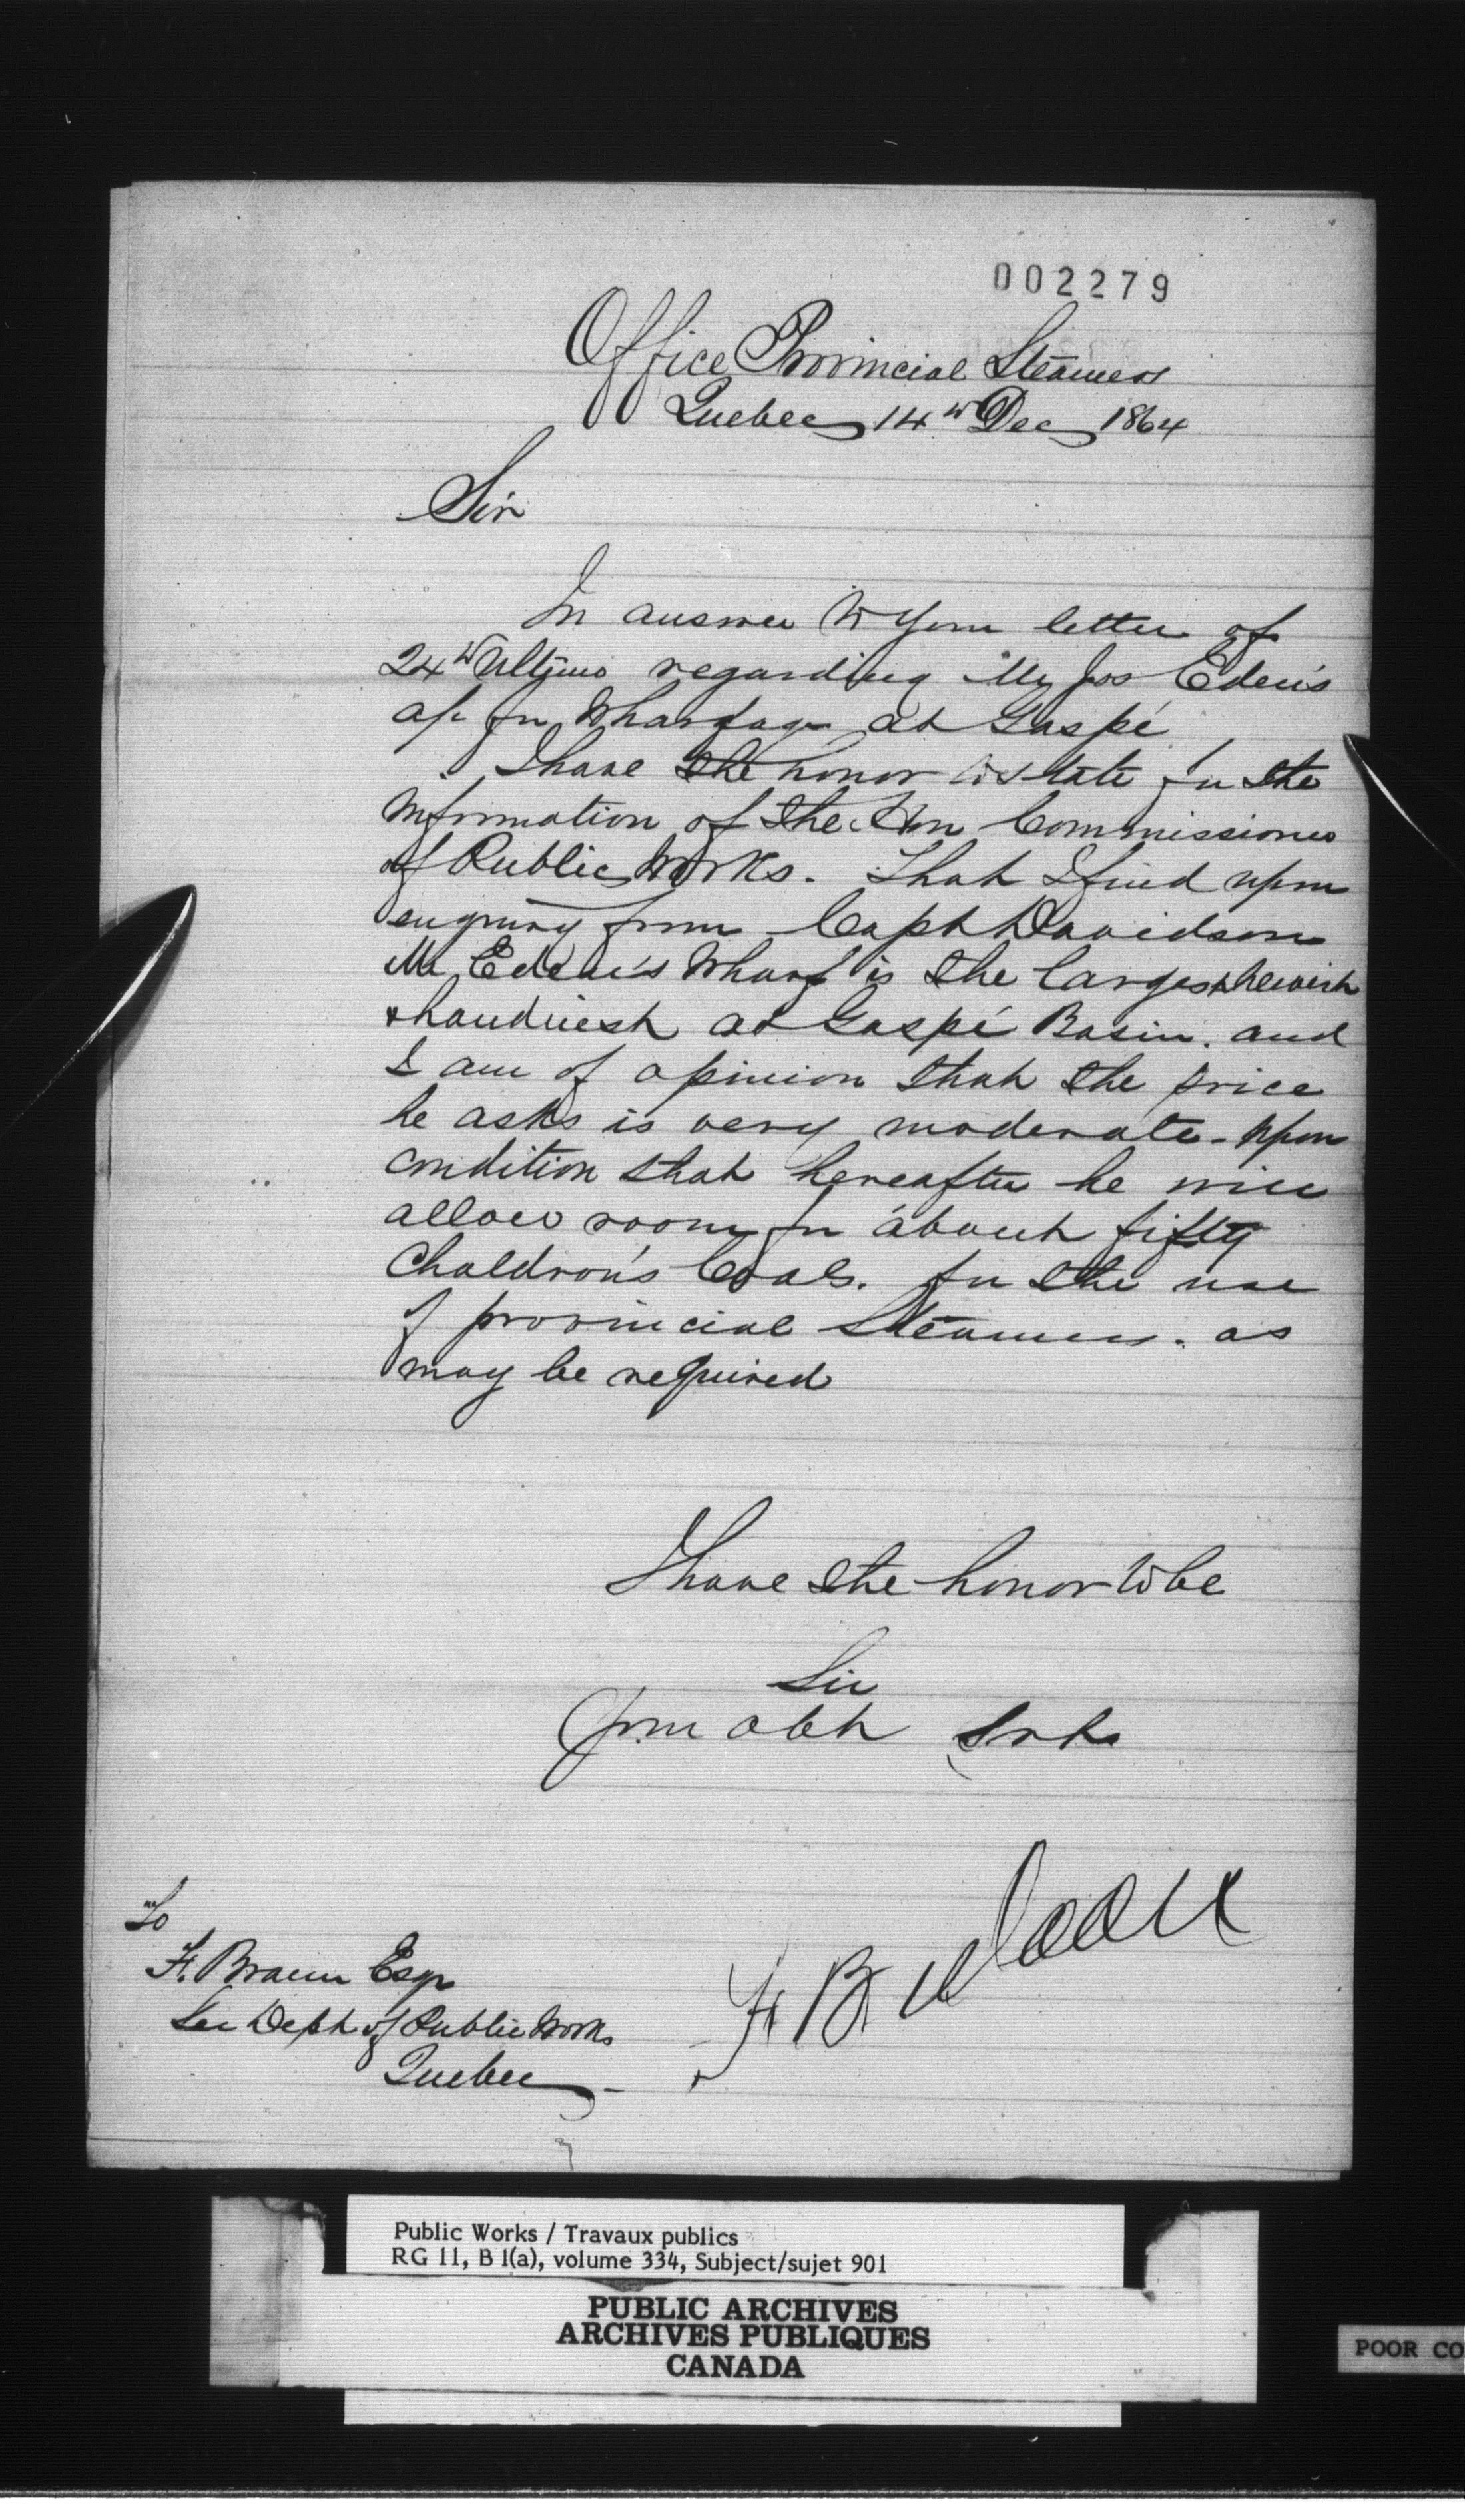 002279
Office Provincial Steamers
Quebec 14th Dec 1864
Sir
In answer to your letter of
24th Ultimo regarding Mr Jos Eden's
a/c for Wharfage at Gaspé
I have the honor to state for the
information of the Hon Commissioner
of Public Works. That I find upon
enquiry from Capt Davidson
Mr Eden's Wharf is the largest
& handiest at Gaspé Basin. and
I am of opinion that the price
he asks is very moderate - upon
condition that hereafter he will
allow room for about fifty
Chaldron's Coals. for the use
of provincial Steamers. as
may be required
I have the honor to be
Sir
Your obt Svt
To
F. Braun Esqr
Sec Dept of Public Works
Quebec
Public Works / Travaux publics
RG 11, B 1(a), volume 334, Subject/sujet 901
PUBLIC ARCHIVES
ARCHIVES PUBLIQUES
CANADA
POOR CO